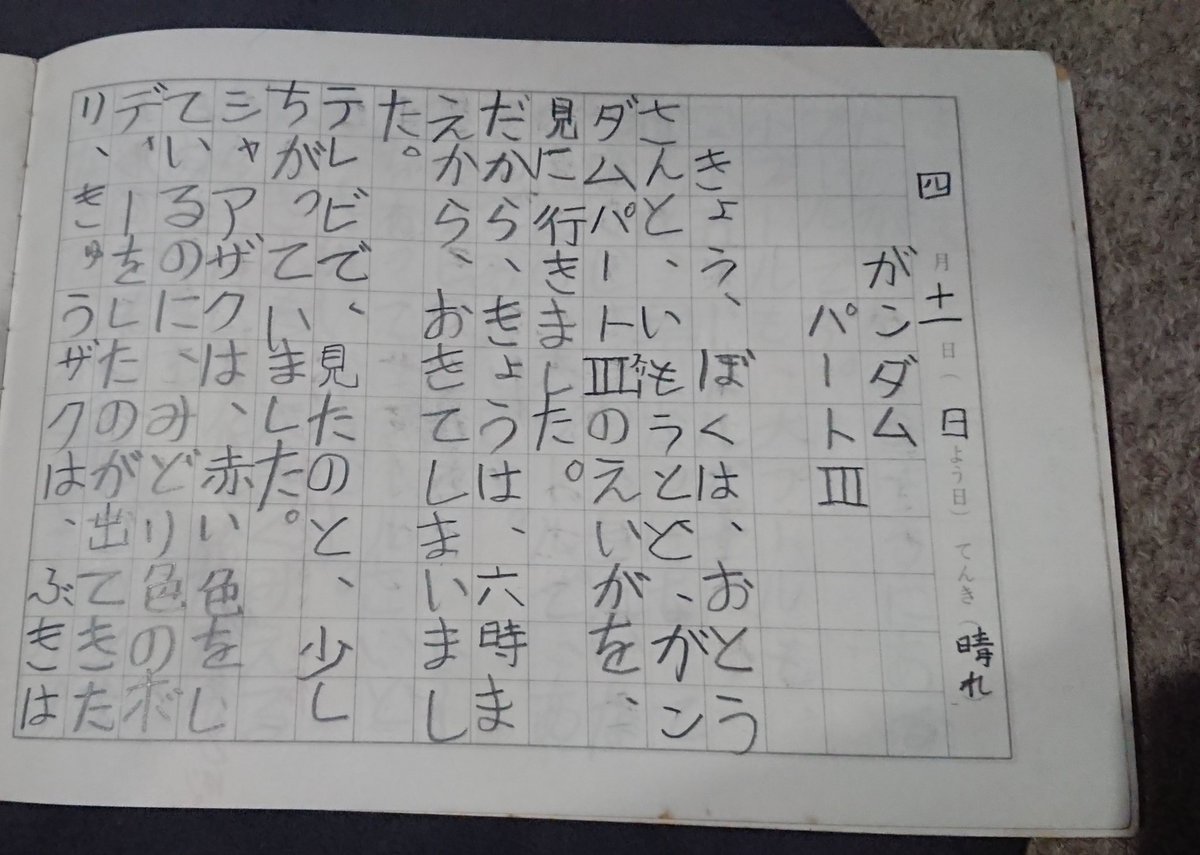 四月十一日（日よう日）てんき（晴れ）
がンダム
パートⅢ
きょう、ぼくは、おとう
さんと、いもうとと、がン
ダムパートⅢのえいがを、
見に行きました。
だから、きょうは、六時ま
えから、おきてしまいまし
た。
テレビで、見たのと、少し
ちがっていました。
シャアザクは、赤い色をし
ているのに、みどり色のボ
ディーをしたのが出てきた
り、きゅうザクは、ぶきは